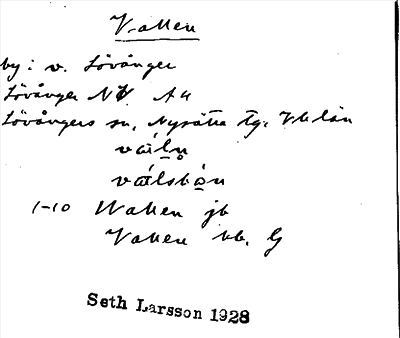 Vallen
by: v. Lövånger
Lövånger NV A4
Lövångers sn, Nysätra tg. Vb län
1-10 Wallen jb
Vallen kb. G
Seth Larsson 1928